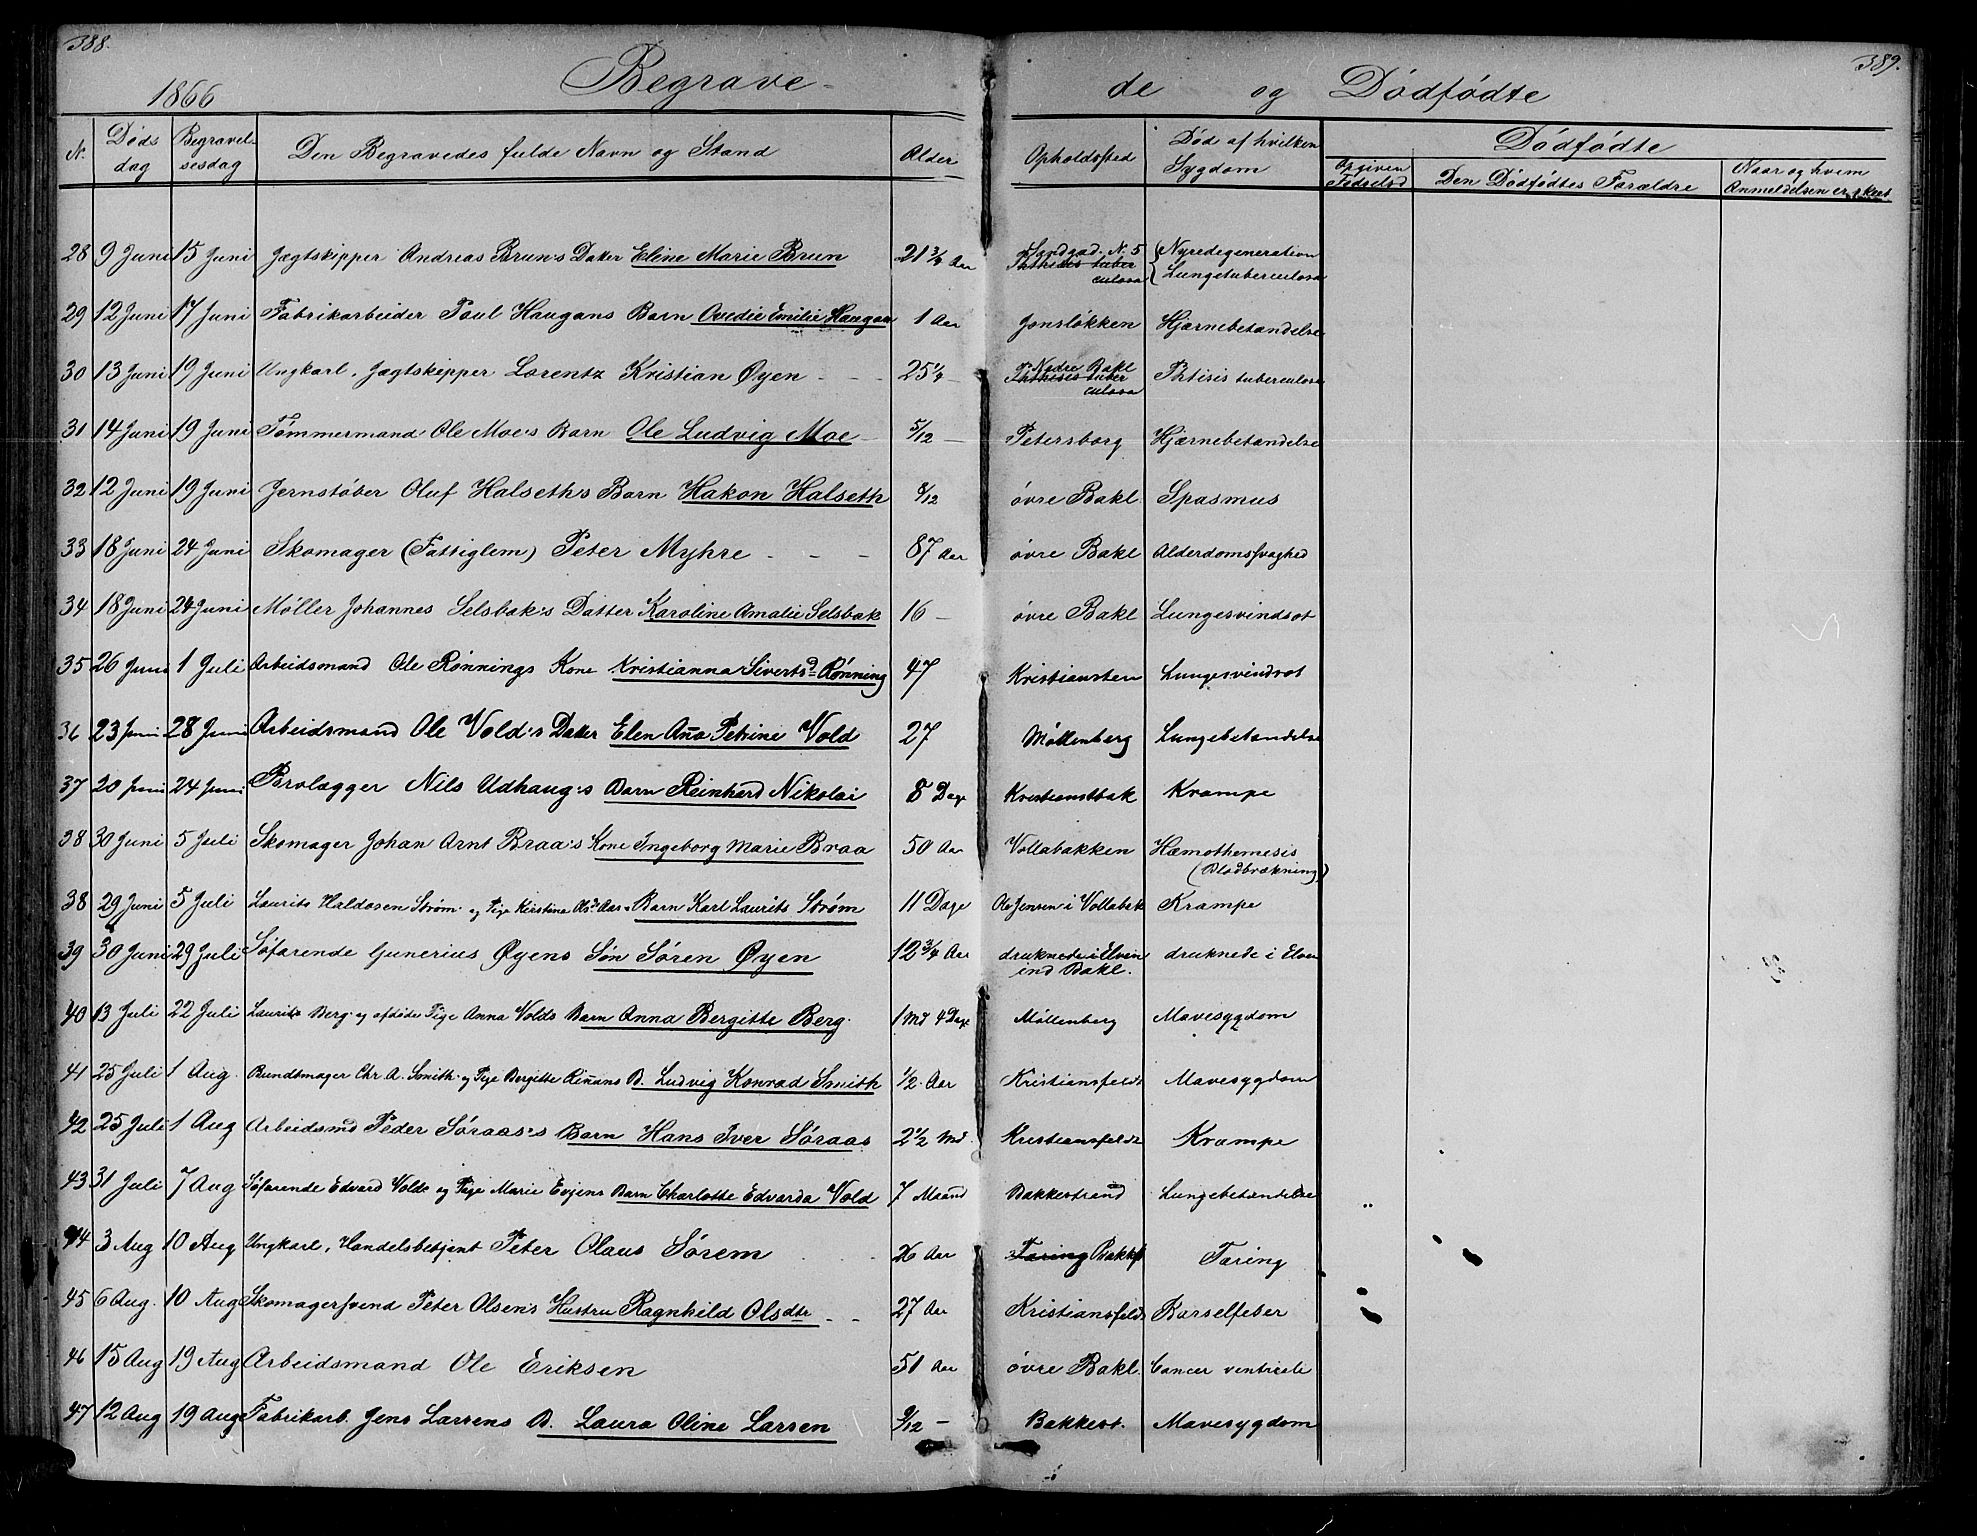 388.
389.
1866
Begrave-
de og Dødfødte
N. Døds dag Begravelsesdag Den Begravedes fulde Navn og Stand Alder Opholdssted Død af hvilken Sygdom Dødfødte
Opgiven Fødselsd Den Dødfødtes Forældre Naar og hvem Anmeldelsen er skeet
28 9 Juni 15 Juni Jægtskipper Andreas Brun's Datter Eline Marie Brun 21 3/4 Aar Sandgad. N. 5 Nyredegeneration
Phthisis tuberculosa Lungetuberculose
29 12 Juni 17 Juni Fabrikarbeider Paul Haugans Barn Ovedie Emilie Haugan 1 Aar Jonsløkken Hjærnebetændelse
30 13 Juni 19 Juni Ungkarl, Jægtskipper Lorentz Kristian Øyen - - 25 1/4 - Nedre Bakl Phtisis tuberculosa
Phthisis tuberculosa
31 14 Juni 19 Juni Tømmermand Ole Moe's Barn Ole Ludvig Moe - 5/12 - Petersborg Hjærnebetændelse
32 12 Juni 19 Juni Jernstøber Oluf Halseth's Barn Hakon Halseth 8/12 øvre Bakl. Spasmus
33 18 Juni 24 Juni Skomager (Fattiglem) Peter Myhre - - - 87 Aar øvre Bakl Alderdomssvaghed
34 18 Juni 24 Juni Møller Johannes Selsbak's Datter Karoline Amalie Selsbak 16 - øvre Bakl Lungesvindsot
35 26 Juni 1 Juli Arbeidsmand Ole Rønnings Kone Kristianna Sivertsd. Rønning 47 Kristiansten Lungesvindsot
36 23 Juni 28 Juni Arbeidsmand Ole Vold's Datter Elen Ana Petrine Vold 27 Møllenberg Lungebetændelse
37 20 Juni 24 Juni Brolægger Nils Udhaug's Barn Reinhard Nikolai 8 Dage Kristianstbak Krampe
38 30 Juni 5 Juli Skomager Johan Arnt Braa's Kone Ingeborg Marie Braa 50 Aar Vollabakken Hæmothemesis
(Blodbrækning)
38 29 Juni 5 Juli Laurits Haldosen Strøm og Pige Kirstina Barn Karl Laurits Strøm 11 Dage Ole Jensen i Vollabak Krampe
39 30 Juni 29 Juli Søfarende Gunerius Øyens Søn Søren Øyen 12 3/4 Aar druknede i Elven druknede i Elven
ind Bakl.
40 13 Juli 22 Juli Laurits Berg og afdøde Pige Anna Volds Barn Anna Bergitte Berg. 1 Md 4 Dage Møllenberg Mavesygdom
41 25 Juli 1 Aug. Bundtmager Chr. A. Smith og Pige Bergitte Rinans B. Ludvig Konrad Smith 1/2 Aar Kristiansfeldt Mavesygdom
42 25 Juli 1 Aug Arbeidsmd Peder Søraas's Barn Hans Iver Søraas 2 1/2 Md. Kristiansfeldt Krampe
43 31 Juli 7 Aug Søfarende Edvard Volds og Pige Marie Evjens Barn Charlotte Edvarda Vold 7 Maand Bakkestrand Lungebetændelse
44 3 Aug 10 Aug Ungkarl, Handelsbetjent Peter Olaus Sørem 26 Aar Tæring Bakkest Tæring
45 6 Aug. 10 Aug Skomagersvend Peter Olsen's Hustru Ragnhild Olsdtr - - 27 Aar Kristiansfeldt Barselfeber
46 15 Aug 19 Aug Arbeidsmand Ole Eriksen 51 Aar øvre Bakl. Cancer ventriculi
47 12 Aug 19 Aug Fabrikarb. Jens Larsens B. Laura Oline Larsen 9/12 - Bakkest. Mavesygdom